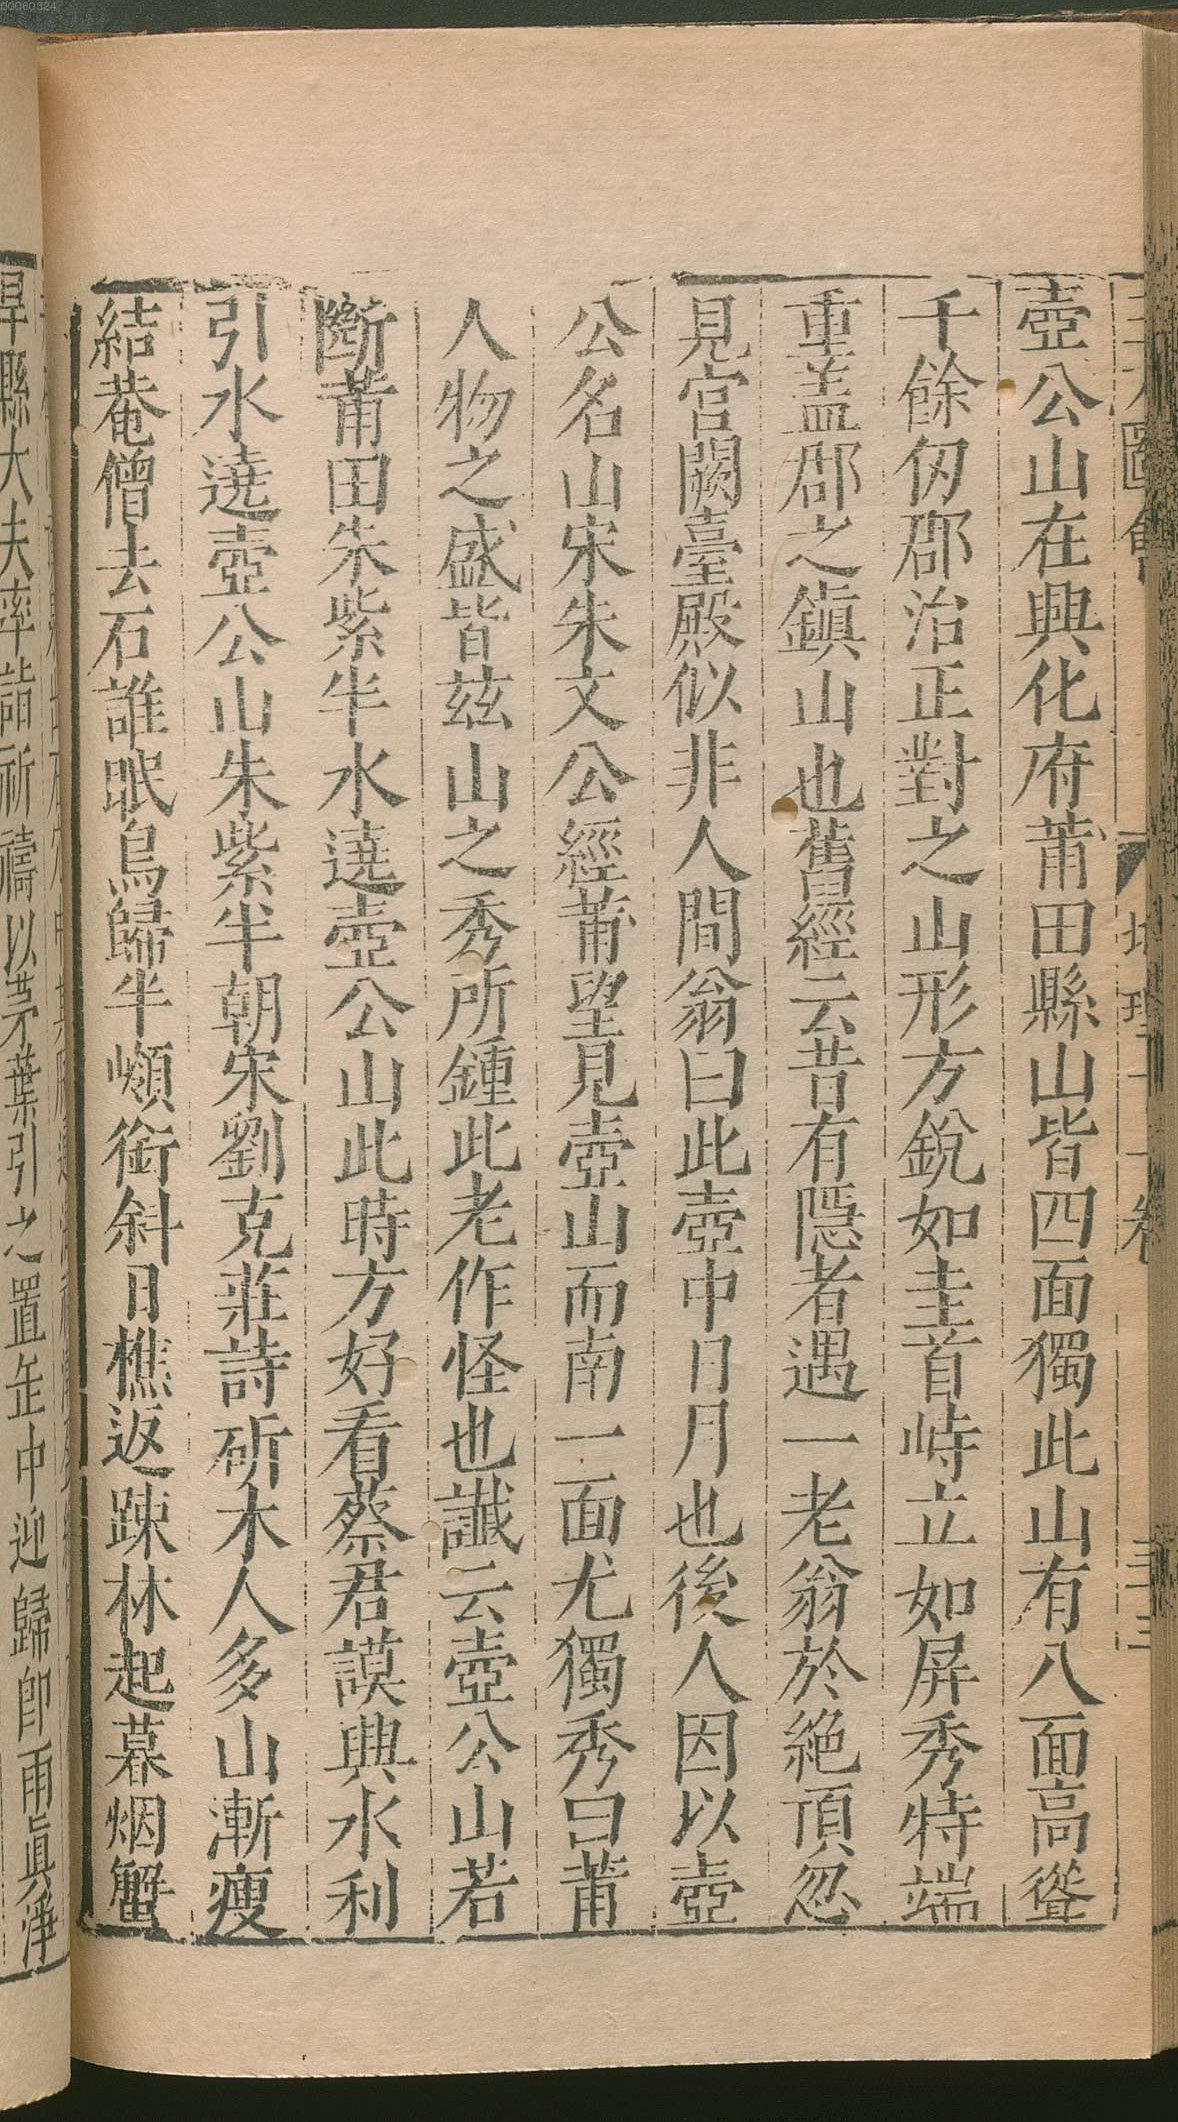 壺公山在興化府莆田縣山皆四面獨此山有八面高聳
千餘仞郡治正對之山形方銳如圭首峙立如屏秀特端
重盖郡之鎮山也舊經云昔有隱者遇一老翁於絶頂忽
見宫闕臺殿似非人間翁曰此壺中日月也後人因以壺
公名山宋朱文公經莆望見壺山而南一面尤獨秀曰莆
人物之盛皆兹山之秀所鍾此老作怪也讖云壺公山若
斷莆田朱紫半水遶壺公山此時方好看蔡君謨興水利
引水遶壺公山朱紫半朝宋劉克莊詩斫木人多山漸瘦
結菴僧去石誰眠鳥歸半嶺銜斜日樵返踈林起暮烟蟹
旱縣大夫率詣祈禱以茅葉引之置缶中迎歸即雨眞淨
00060324